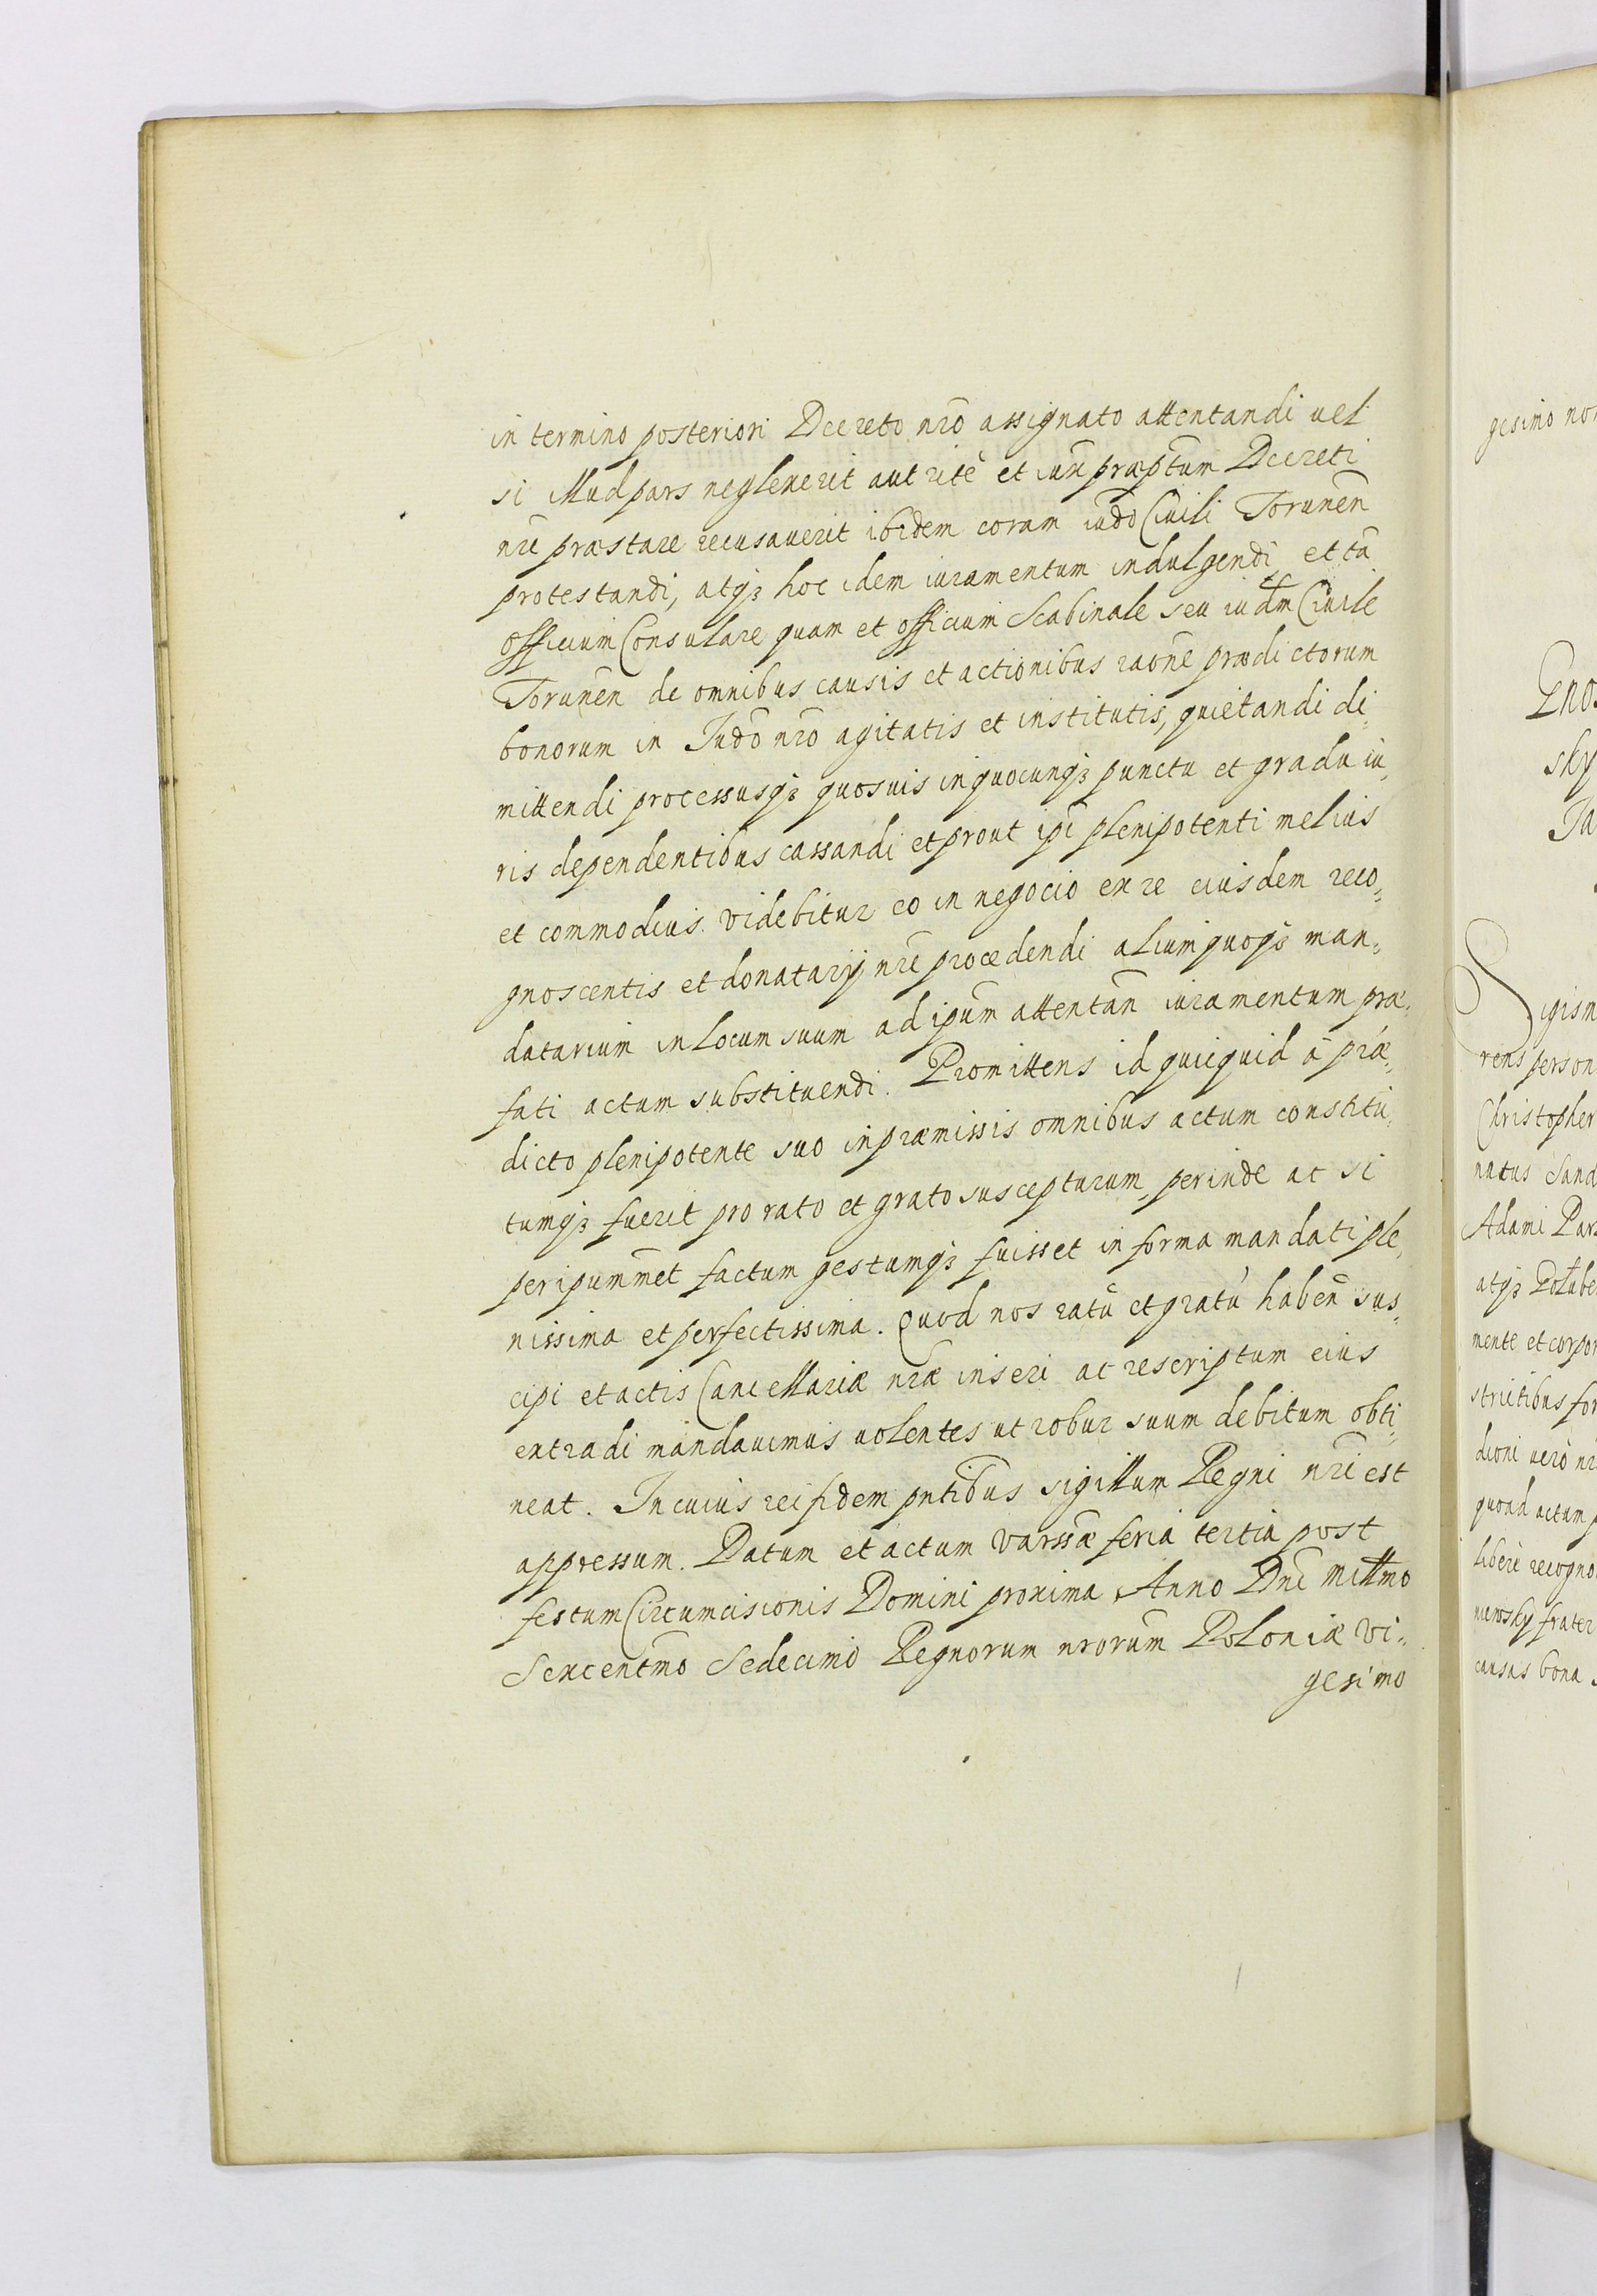 in termino posteriori Decreto nr̃o assignato attentandi uel
si illud pars neglexerit aut ritè et iux̃ præp̃tum Decreti
nr̃i præstare recusauerit ibidem coram iud̃o Ciuili Torunen̄
protestandi, atq3 hoc idem iuramentum indulgendi, et tā
officium Consulare quam et officium Scabinale seu iud̃m Ciuile
Torunen̄ de omnibus causis et actionibus rãone prædictorum
bonorum in Iud̃o nr̃o agitatis et institutis, quietandi di„
mittendi processusq3 quosuis in quocunq3 punctu et gradu iu„
ris dependentibus cassandi et prout ip̃i plenipotenti melius
et commodius videbitur eo in negocio ex re eiusdem reco„
gnoscentis et donatarij nr̃i procedendi alium quoq3 man„
datarium in locum suum ad ip̃um attentan̄ iuramentum præ„
fati actum substituendi. Promittens id quicquid à præ„
dicto plenipotente suo in præmissis omnibus actum constitu„
tumq3 fuerit pro rato et grato suscepturum, perinde ac si
per ipum̃met factum gestumq3 fuisset in forma mandati ple„
nissima et perfectissima. Quod nos ratū et gratū haben̄ sus„
cipi et actis Cancellariæ nr̃æ inseri ac rescriptum eius
extradi mandauimus uolentes ut robur suum debitum obti„
neat. In cuius rei fidem pn̄tibus sigillum Regni nr̃i est
appressum. Datum et actum Varssæ feria tertia post
festum Circumcisionis Domini proxima Anno Dn̄i Millmo
Sexcentm̃o Sedecimo Regnorum nrorum̃ Poloniæ Vi„
gesimo
gesimo no
Eno
sky
Ia
Sigism
rens person
Christopher
natus Sand
Adami Par
atq3 Połube
mente et corpor
strictibus for
dioni uerò nr
quoad actum
liberè recogno
niewsky frater
causas bona